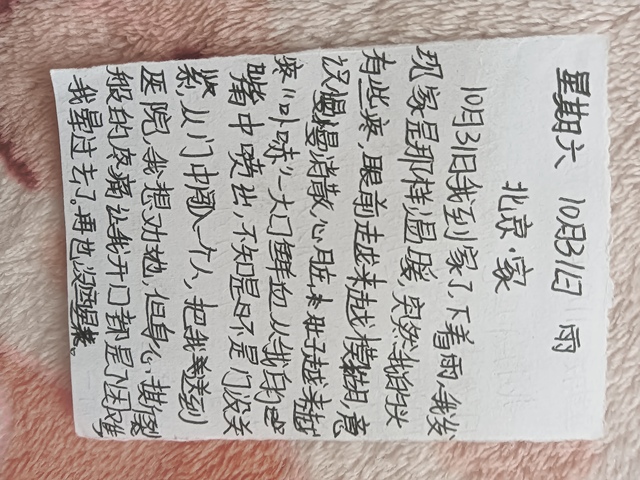 星期六 10月31日 雨
北京·家
10月31日我到家了,下着雨,我发
现家是那样温暖,突然我的头
有些疼,眼前走越来越模糊,意
识慢慢消散,心脏,肚子越来越
疼"卟哧"一大口鲜血从我的
嘴中喷出,不知是不是门没关
紧,从门中闯一个人,把我送到
医院,我想劝她,但身心撕
般的疼痛让我开口都是个困难
我晕过去了。再也没醒来。